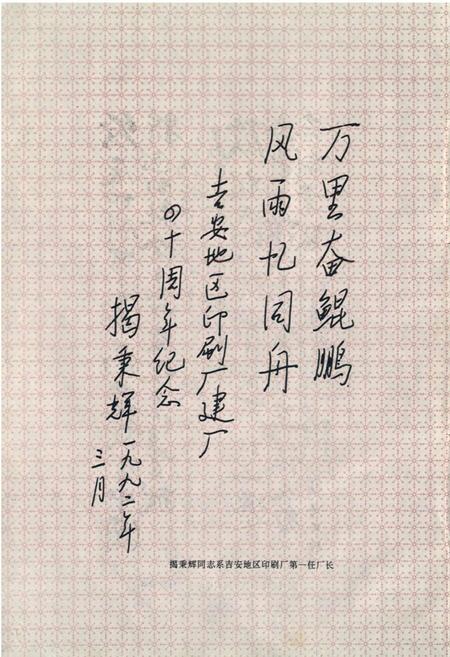 万里奋鲲鹏
风雨忆同舟
吉安地区印刷厂建厂
四十周年纪念
揭秉辉一九九二年
三月
揭秉辉同志系吉安地区印刷厂第一任厂长